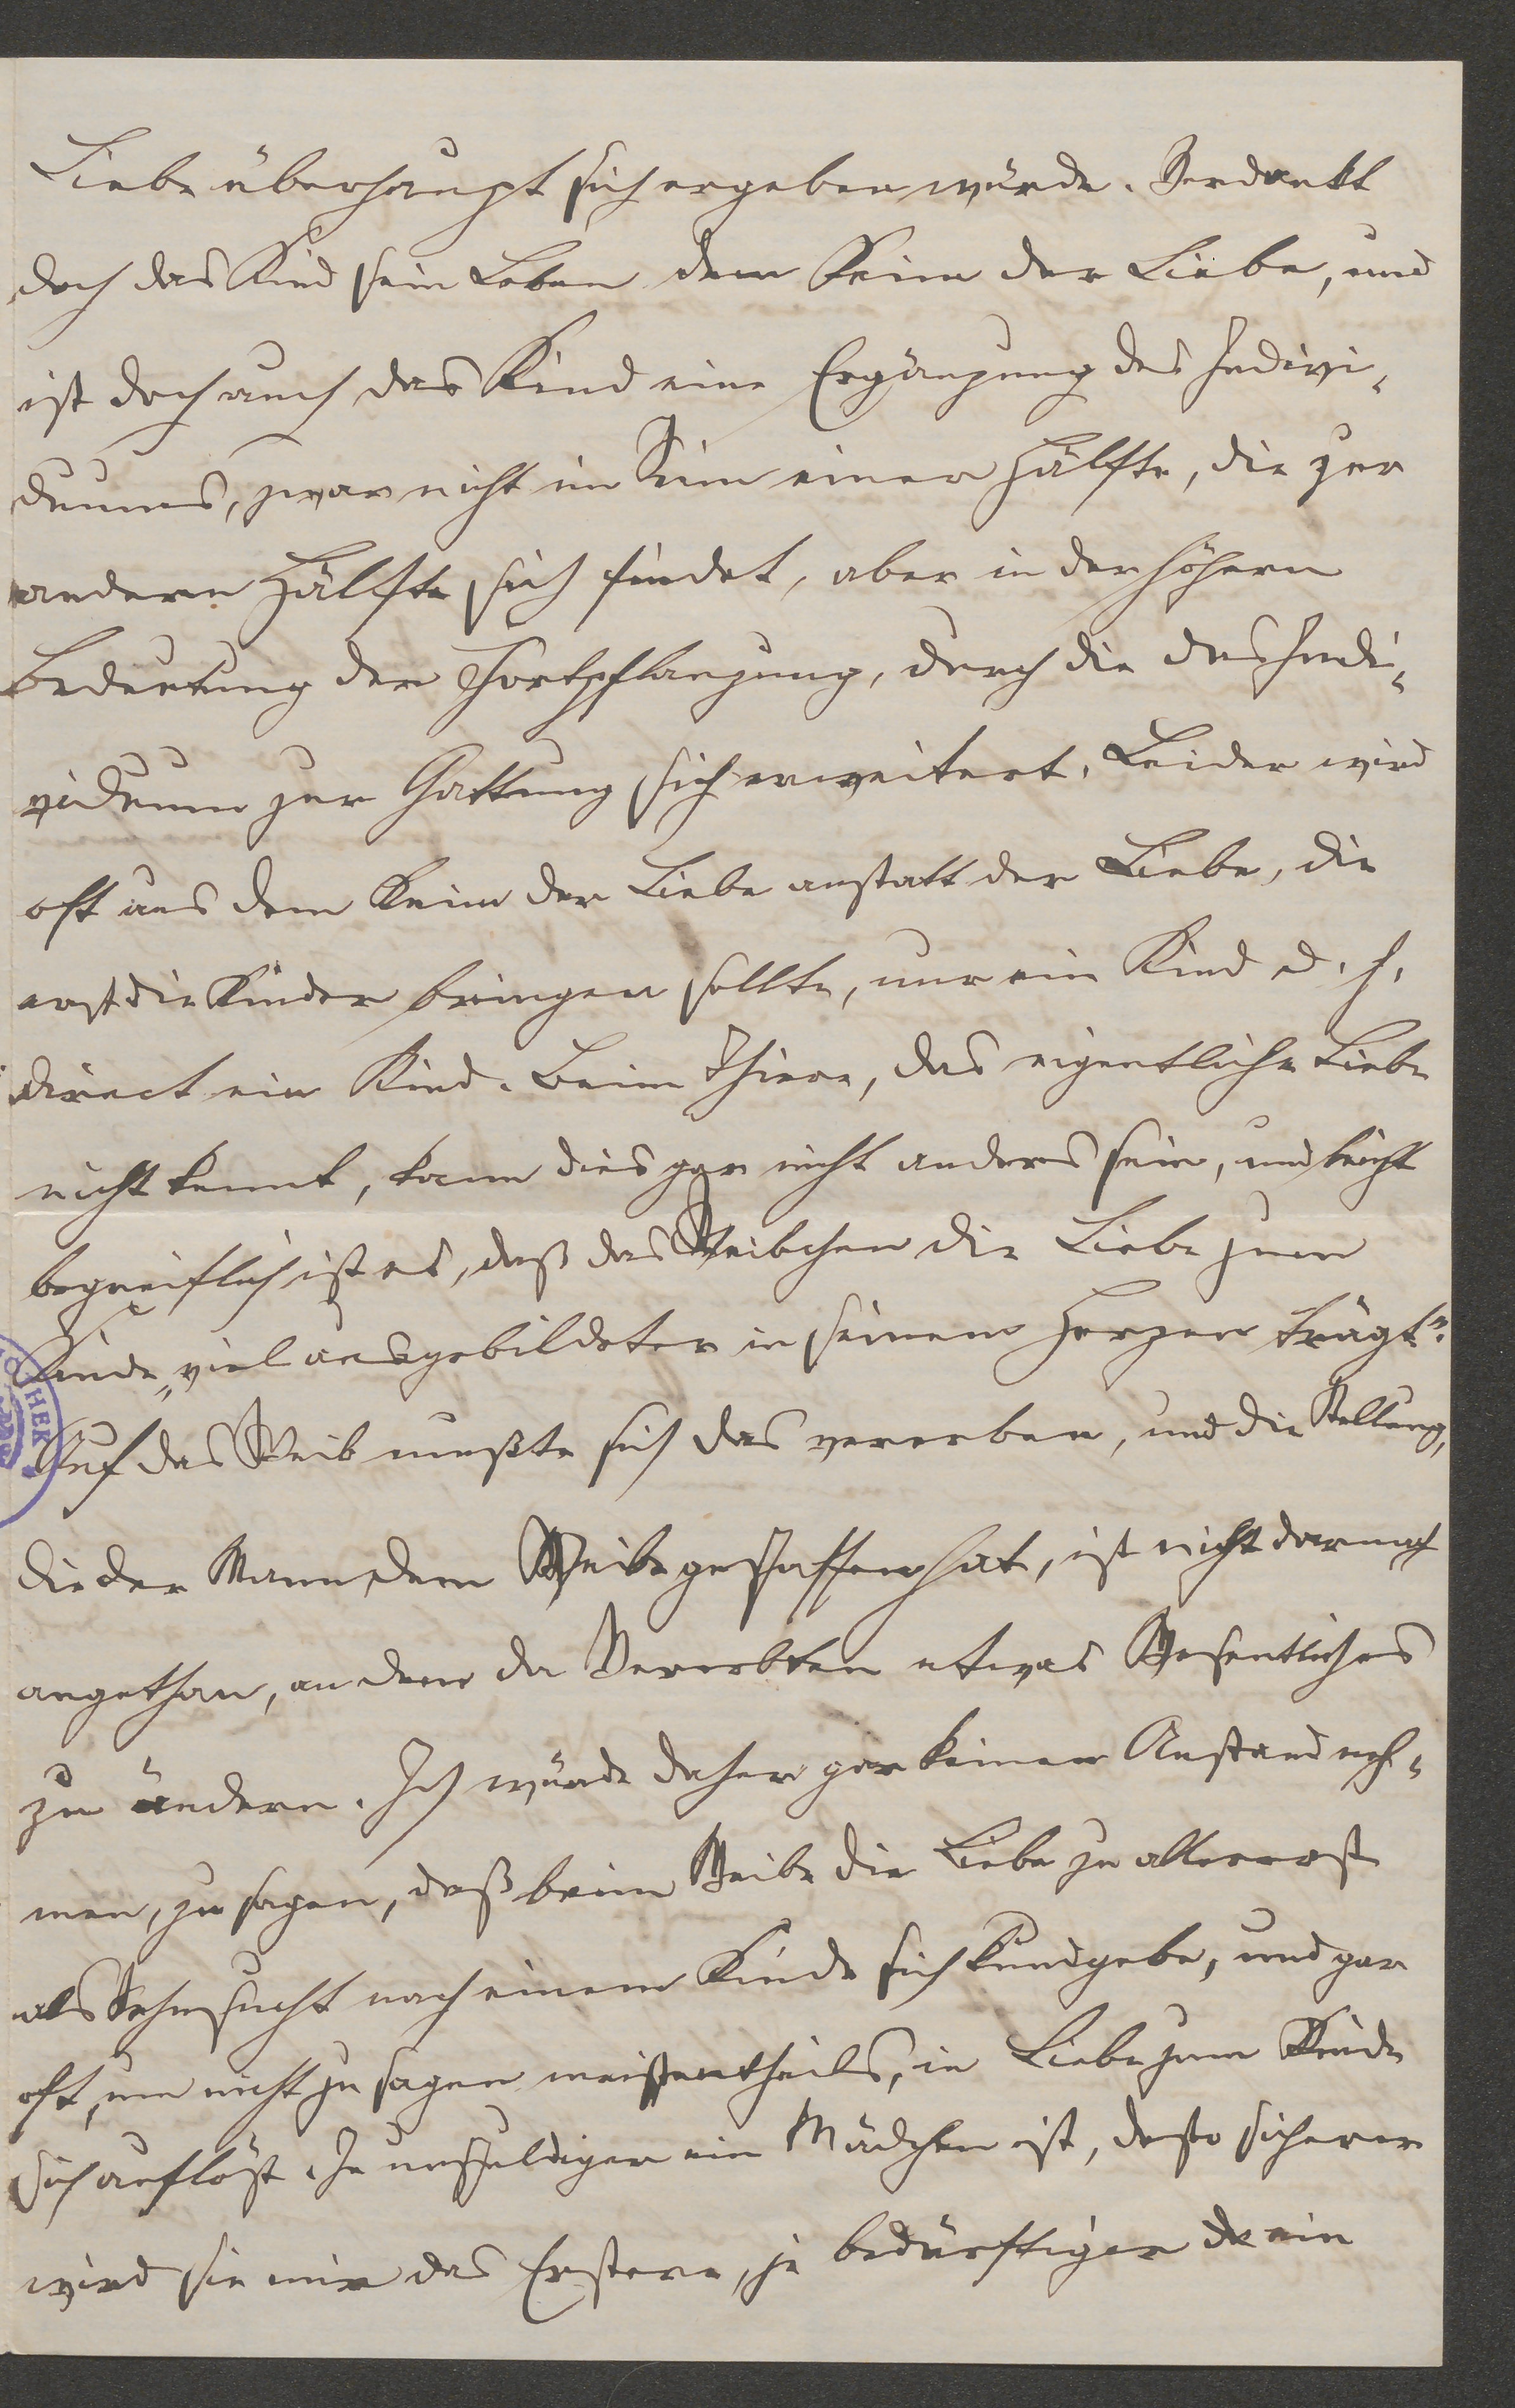 Liebe überhaupt sich ergeben würde. Verdankt
doch das Kind sein Leben dem Keim der Liebe, und
ist doch auch das Kind eine Ergänzung des Indivi-
duums, zwar nicht im Sinn einer Hälfte, die zur
andern Hälfte sich findet, aber in der höhern
Bedeutung der Fortpflanzung, durch die das Indi-
viduum zur Gattung sich erweitert. Leider wird
oft aus dem Keim der Liebe anstatt der Liebe, die
erst die Kinder bringen sollte, nur ein Kind d. h.
direct ein Kind. Beim Thiere, das eigentliche Liebe
nicht kennt, kann dies gar nicht anders sein, und leicht
begreiflich ist es, daß das Weibchen die Liebe zum
Kinde „viel ausgebildeter in seinem Herzen trägt“.
Auf das Weib mußte sich das vererben, und die Stellung,
die der Mann dem Weibe geschaffen hat, ist nicht darnach
angethan, an dem da Vererbten etwas Wesentliches
zu ändern. Ich würde daher gar keinen Anstand neh-
men, zu sagen, daß beim Weibe die Liebe zu allererst
als Sehnsucht nach einem Kinde sich kundgebe, und gar
oft, um nicht zu sagen meistentheils, in Liebe zum Kinde
sich auflöst. Je unschuldiger ein Mädchen ist, desto sicherer
wird sie mir das Erstere, je bedürftiger ein
HEK